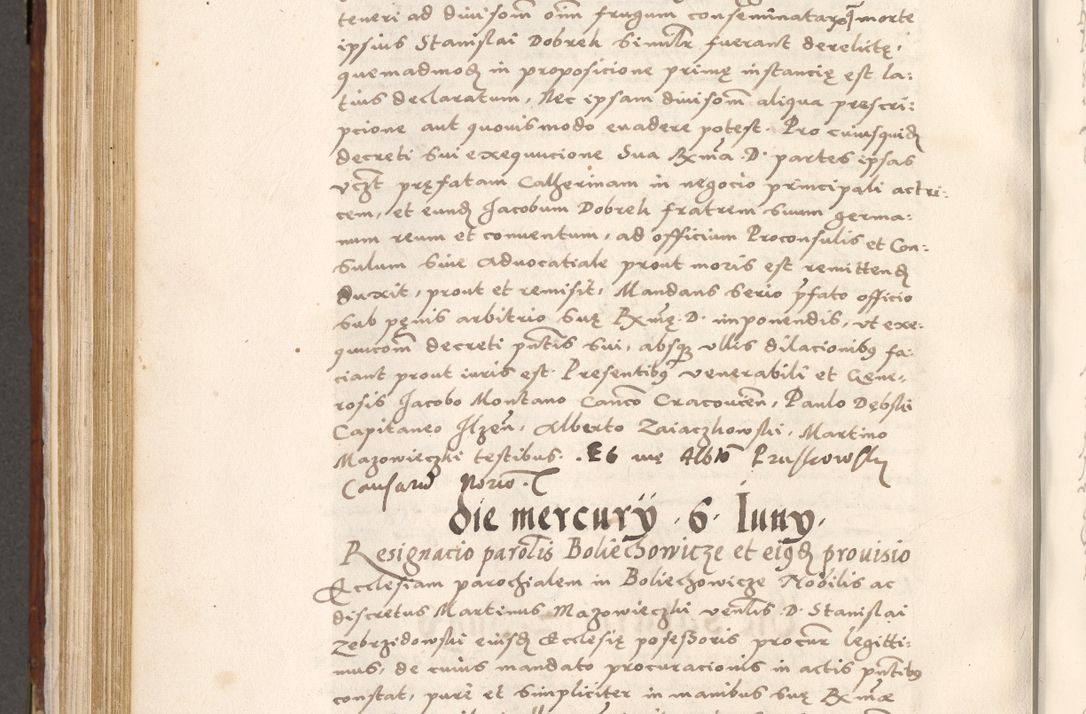 teneri ad divisom oim frugum conseminataru morte
ipsius Stanislai Dobrek simulr fuerant derelictę,
quemadmodȝ in proposicione primę instancię est la:
tius declaratum, Nec ipsam divisom aliqua prescri:
pcione aut quovismodo evadere potest. Pro cuiusquidȝ
decreti sui exequucione Sua Rxma D. partes ipsas
vczt pręfatam Catherinam in negocio principali actri:
cem, et eundȝ Jacobum Dobrek fratrem suum germa:
num reum et conventum, ad officium Proconsulis et Con:
sulum sive advocatiale prout moris est remittendȝ
duxit, prout et remisit, Mandans serio pfato officio
sub pęnis arbitrio suę Rxmę D. imponendis, ut exe:
quucom decreti pntis sui, absqȝ ullis dilacionibȝ fa:
ciant prout iuris est. Presentibȝ venerabili et Gene:
rosis Jacobo Montano Canco Cracovien, Paulo Dębski
Capitaneo Ilzen, Alberto Zaiaczkowski, Martino
Mazowieczki testibus. Et me Albto Pruskowsky
Causarum Norio.
Die mercury 6 Juny.
Resignacio parolis Boliechowicze et eiqdȝ provisio
Ecclesiam parochialem in Boliechowicze Nobilis ac
discretus Martinus Mazowieczki venlis D. Stanislai
Zebrzidowski eiusdȝ Ecclesię possessoris procur legitti:
mus, de cuius mandato procuracionis in actis pntibȝ
constat, purè et simpliciter in manibus suę Rxmæ